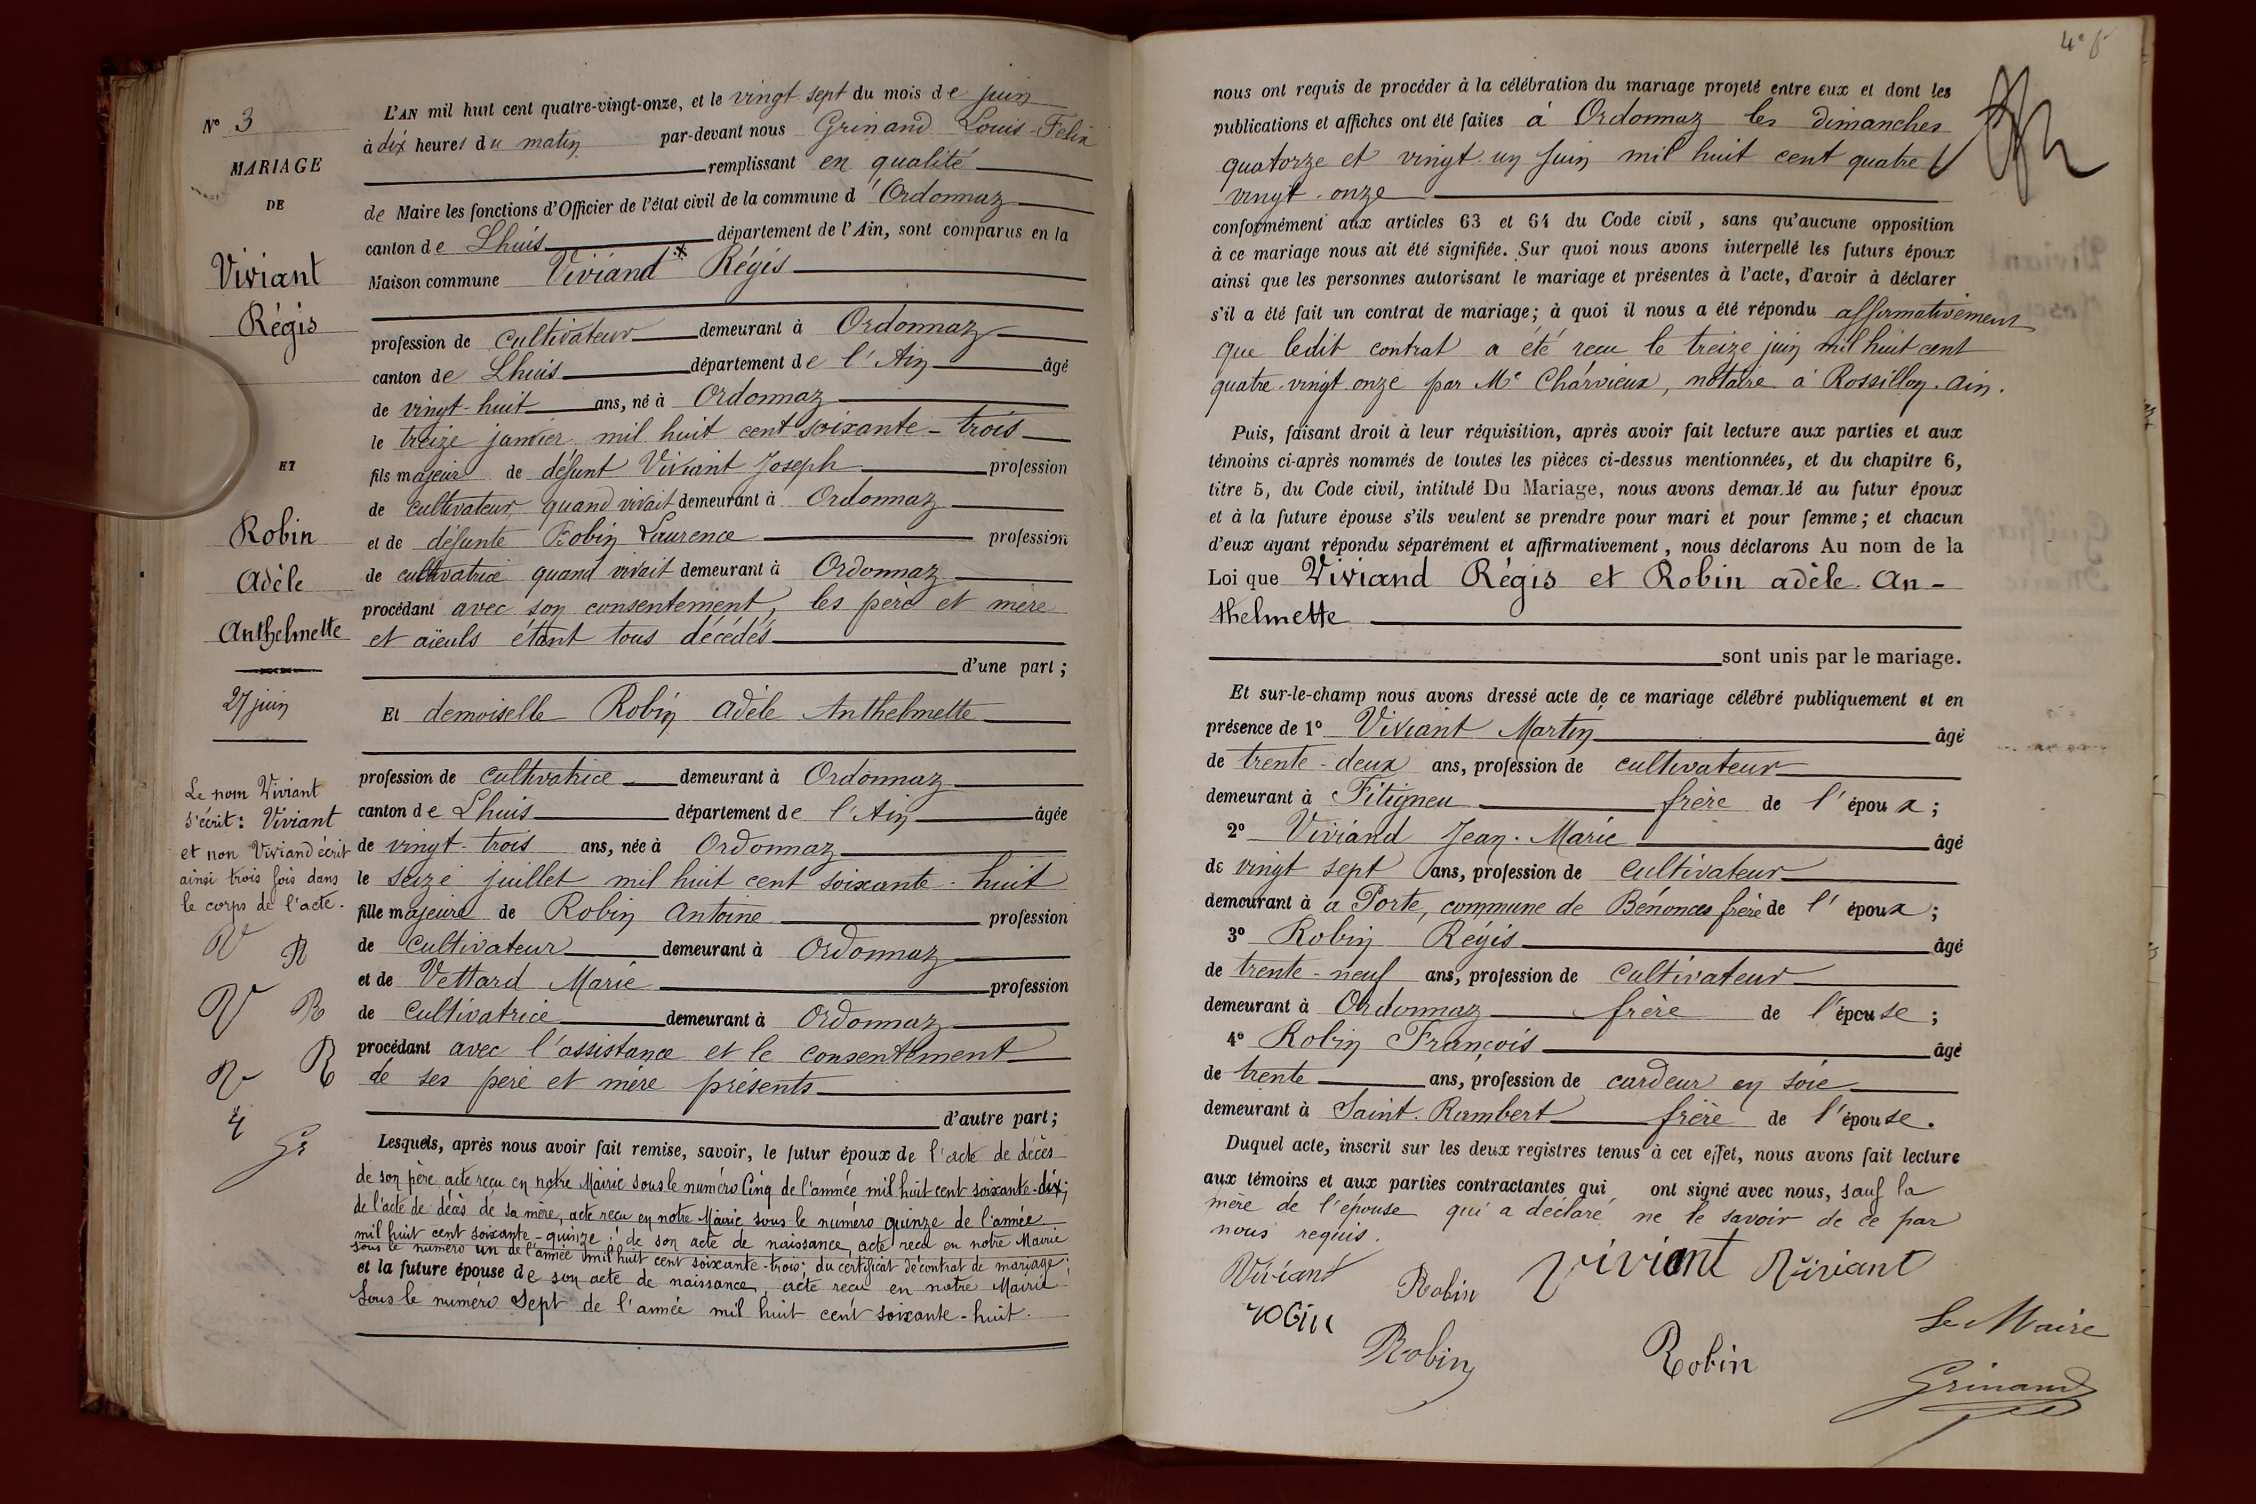 Nº 3
MARIAGE
DE
Viviant
Régis
ET
Robin
Adèle
Anthelmette
27 juin
Le nom Viviant
s'écrit : Viviant
et non Viviand écrit
ainsi trois fois dans
le corps de l'acte.
V R
V R
R
Gr
L'AN mil huit cent quatre-vingt-onze, et le vingt sept du mois de juin
à dix heures du matin par-devant nous Grinand Louis-Felix
remplissant en qualité
de Maire les fonctions d'Officier de l'état civil de la commune d'Ordonnaz
canton de Lhuis département de l'Ain, sont comparus en la
Maison commune Viviand Régis
profession de cultivateur demeurant à Ordonnaz
canton de Lhuis département de l'Ain âgé
de vingt-huit ans, né à Ordonnaz
le treize janvier mil huit cent soixante-trois
fils majeur de défunt Viviant Joseph profession
de cultivateur quand vivait demeurant à Ordonnaz
et de défunte Robin Laurence profession
de cultivatrice quand vivait demeurant à Ordonnaz
procédant avec son consentement, les père et mère
et aïeuls étant tous décédés
d'une part ;
Et demoiselle Robin Adèle Anthelmette
profession de cultivatrice demeurant à Ordonnaz
canton de Lhuis département de l'Ain âgée
de vingt-trois ans, née à Ordonnaz
le seize juillet mil huit cent soixante-huit
fille majeure de Robin Antoine profession
de cultivateur demeurant à Ordonnaz
et de Vettard Marie profession
de cultivatrice demeurant à Ordonnaz
procédant avec l'assistance et le consentement
de ses père et mère présents
d'autre part ;
Lesquels, après nous avoir fait remise, savoir, le futur époux de l'acte de décès
de son père acte reçu en notre Mairie sous le numéro Cinq de l'année mil huit cent soixante-dix ;
de l'acte de décès de sa mère, acte reçu en notre Mairie sous le numéro quinze de l'année
mil huit cent soixante-quinze ; de son acte de naissance, acte reçu en notre Mairie
sous le numéro un de l'année mil huit cent soixante-trois ; du certificat de contrat de mariage ;
et la future épouse de son acte de naissance, acte reçu en notre Mairie
sous le numéro Sept de l'année mil huit cent soixante-huit.
nous ont requis de procéder à la célébration du mariage projeté entre eux et dont les
publications et affiches ont été faites à Ordonnaz les dimanches
quatorze et vingt-un juin mil huit cent quatre
vingt-onze
conformément aux articles 63 et 64 du Code civil, sans qu'aucune opposition
à ce mariage nous ait été signifiée. Sur quoi nous avons interpellé les futurs époux
ainsi que les personnes autorisant le mariage et présentes à l'acte, d'avoir à déclarer
s'il a été fait un contrat de mariage ; à quoi il nous a été répondu affirmativement
que ledit contrat a été reçu le treize juin mil huit cent
quatre-vingt-onze par Me Charvieux, notaire à Rossillon. Ain.
Puis, faisant droit à leur réquisition, après avoir fait lecture aux parties et aux
témoins ci-après nommés de toutes les pièces ci-dessus mentionnées, et du chapitre 6,
titre 5, du Code civil, intitulé Du Mariage, nous avons demandé au futur époux
et à la future épouse s'ils veulent se prendre pour mari et pour femme ; et chacun
d'eux ayant répondu séparément et affirmativement, nous déclarons Au nom de la
Loi que Viviand Régis et Robin Adèle An-
thelmette
sont unis par le mariage.
Et sur-le-champ nous avons dressé acte de ce mariage célébré publiquement et en
présence de 1º Viviant Martin âgé
de trente-deux ans, profession de cultivateur
demeurant à Fitigneu frère de l'époux ;
2º Viviand Jean-Marie âgé
de vingt sept ans, profession de cultivateur
demeurant à a Porte, commune de Bénonces frère de l'époux ;
3º Robin Régis âgé
de trente-neuf ans, profession de cultivateur
demeurant à Ordonnaz frère de l'épouse ;
4º Robin François âgé
de trente ans, profession de cardeur en soie
demeurant à Saint-Rambert frère de l'épouse.
Duquel acte, inscrit sur les deux registres tenus à cet effet, nous avons fait lecture
aux témoins et aux parties contractantes qui ont signé avec nous, sauf la
mère de l'épouse qui a déclaré ne le savoir de ce par
nous requis.
Viviant Robin Viviant Viviant
robin Robin Robin
Le Maire
Grinand